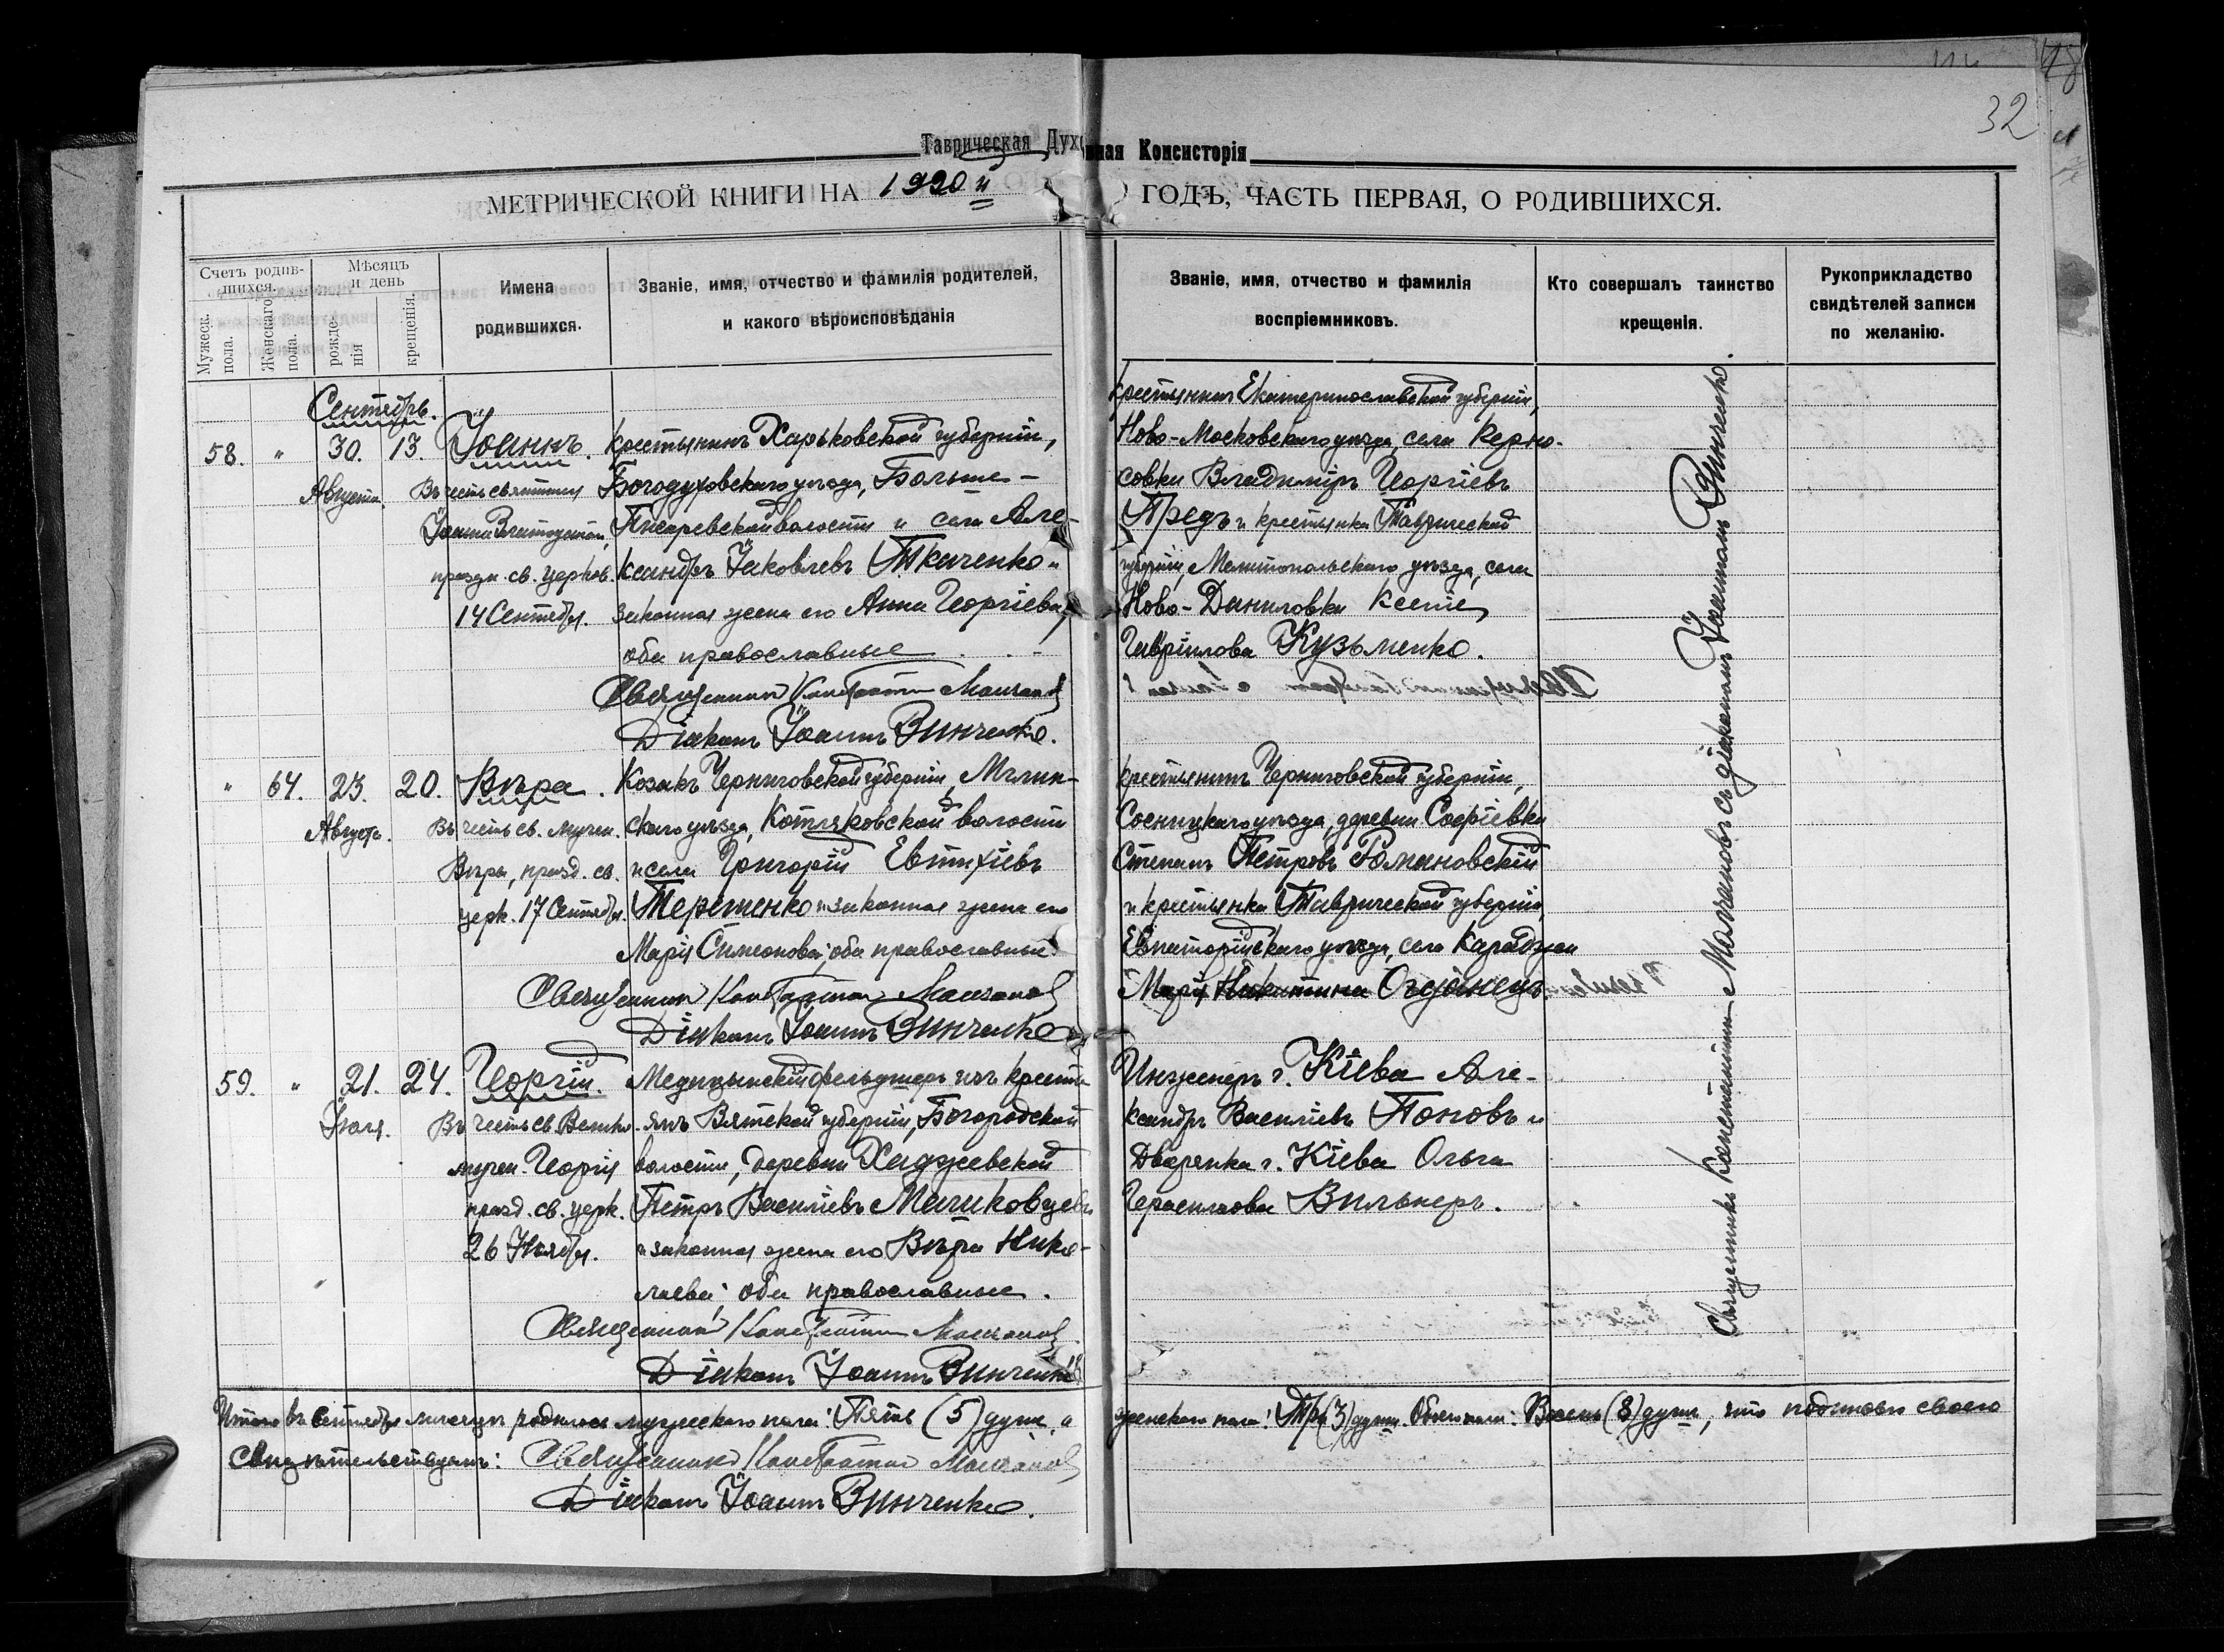 32
Таврическая Духовная Консисторія
МЕТРИЧЕСКОЙ КНИГИ НА 1920й ГОДЪ, ЧАСТЬ ПЕРВАЯ, О РОДИВШИХСЯ.
Счетъ родившихся.
Мужеск. пола.
Женскаго пола.
Мѣсяцъ и день
рожденія
крещенія.
Имена родившихся.
Званіе, имя, отчество и фамилія родителей,
и какого вѣроисповѣданія
Званіе, имя, отчество и фамилія
воспріемниковъ.
Кто совершалъ таинство
крещенія.
Рукоприкладство
свидѣтелей записи
по желанію.
Сентябрь.
58. " 30. 13. Іоаннъ.
Августа.
Въ честь святителя
Іоанна Златоустаго,
праздн. св. церков.
14 Сентября.
Крестьянинъ Харьковской губерніи,
Богодуховскаго уѣзда, Больше-
Писаревской волости и села Але-
ксандръ Іаковлевъ Ткаченко и
законная жена его Анна Георгіева,
оба православные
Священникъ Константинъ Молчановъ
Діаконъ Іоаннъ Винченко.
Крестьянинъ Екатеринославской губерніи,
Ново-Московскаго уѣзда, села Керно-
совки Владиміръ Георгіевъ
Предъ и крестьянка Таврической
губерніи, Мелитопольскаго уѣзда, села
Ново-Даниловки Ксенія
Гавріилова Кузьменко.
" 64. 23. 20. Вѣра.
Августа.
Въ честь св. мучен.
Вѣры, празд. св.
церк. 17 Сентября.
Козакъ Черниговской губерніи, Мглин-
скаго уѣзда, Котляковской волости
и села Григорій Евтихіевъ
Терещенко и законная жена его
Марія Симеонова; оба православные
Священникъ Константинъ Молчановъ
Діаконъ Іоаннъ Винченко
Крестьянинъ Черниговской губерніи,
Сосницкаго уѣзда, деревни Софіевки
Степанъ Петровъ Романовскій
и крестьянка Таврической губерніи,
Евпаторійскаго уѣзда, села Караджи
Марія Никитина
59. " 21. 24. Георгій.
Іюля.
Въ честь св. Велико-
мучен. Георгія
празд. св. церк.
26 Ноября.
Медицынскій фельдшеръ изъ кресть-
янъ Вятской губерніи, Богородской
волости, деревни Хаджеевской
Петръ Василіевъ Мечиковцевъ
и законная жена его Вѣра Нико-
лаева; оба православные.
Священникъ Константинъ Молчановъ
Діаконъ Іоаннъ Винченко
Инженеръ г. Кіева Але-
ксандръ Василіевъ Поповъ и
Дворянка г. Кіева Ольга
Герасимова Вильнеръ.
Священникъ Константинъ Молчановъ съ діакономъ Іоанномъ Винченко.
Итого въ Сентябрѣ мѣсяцѣ родилось мужескаго пола: Пять (5) душъ, и женскаго пола: Три (3) души. Обоего пола: Восемь (8) душъ, что подписомъ своего
свидѣтельствуемъ: Священникъ Константинъ Молчановъ
Діаконъ Іоаннъ Винченко.